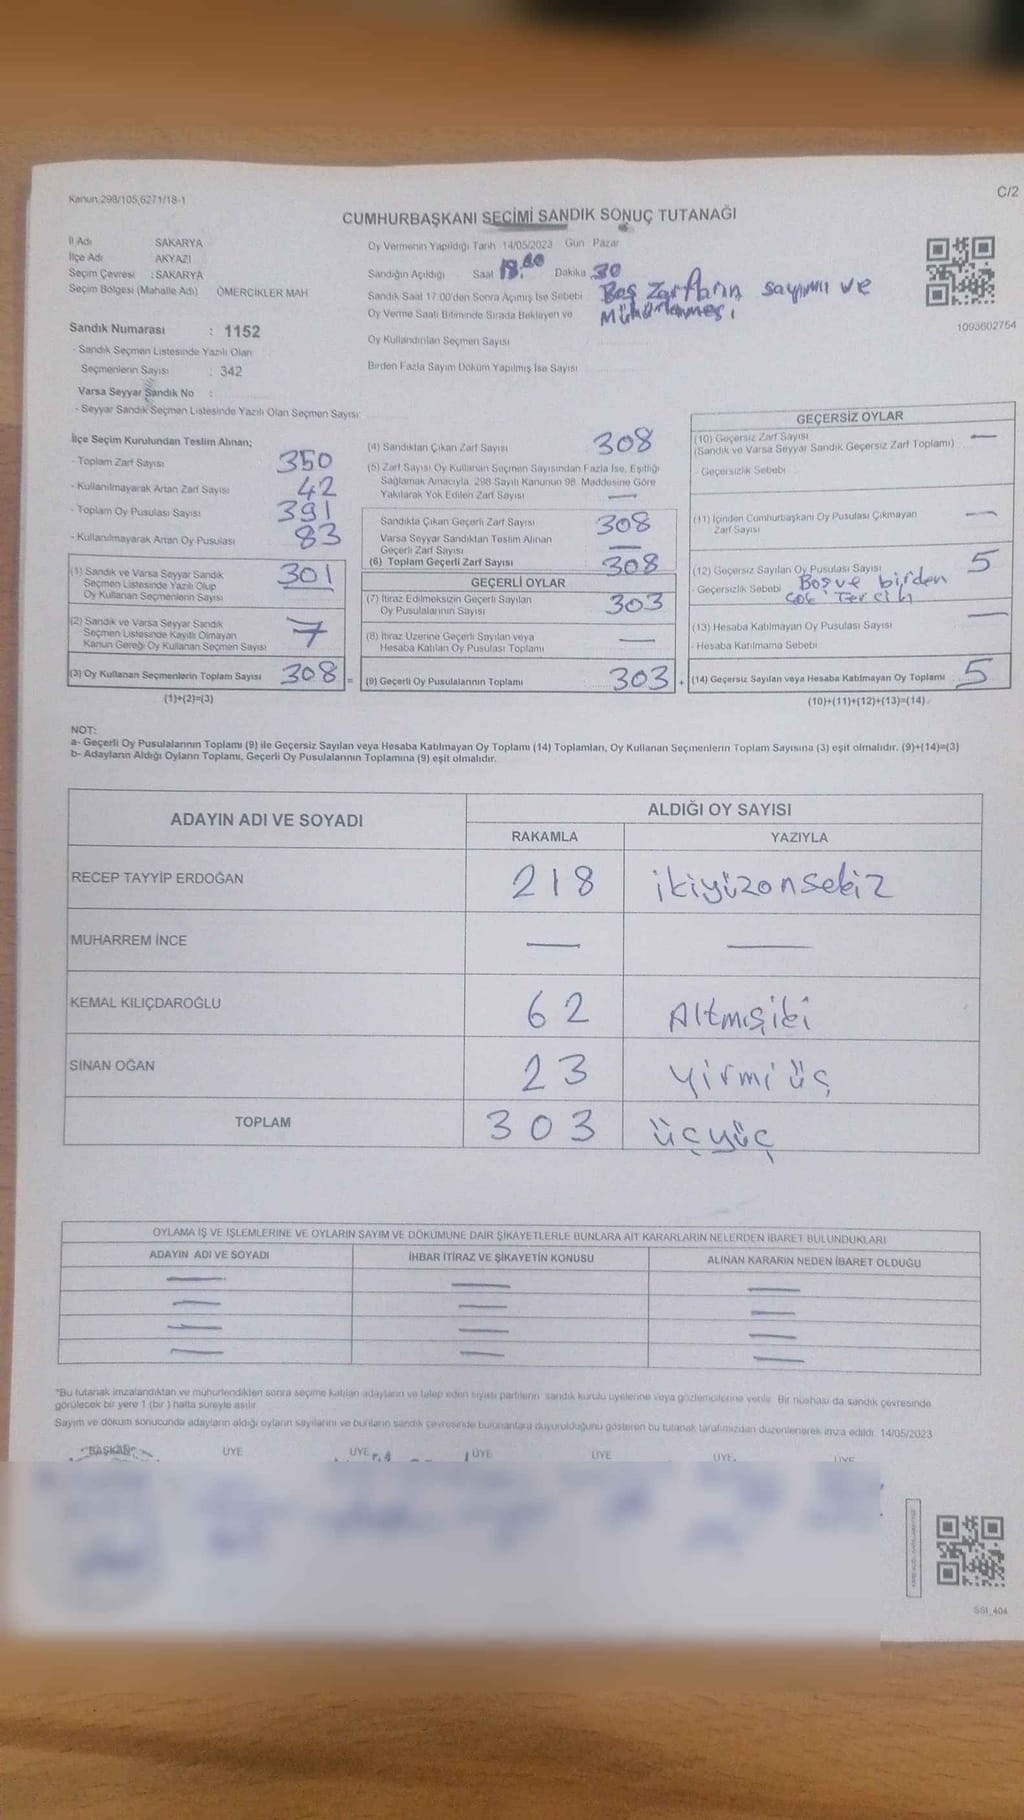 Kanun:298/105,6271/18-1
C/2
CUMHURBAŞKANI SEÇİMİ SANDIK SONUÇ TUTANAĞI
İl Adı SAKARYA
İlçe Adı AKYAZI
Seçim Çevresi : SAKARYA
Seçim Bölgesi (Mahalle Adı) ÖMERCİKLER MAH
Oy Vermenin Yapıldığı Tarih 14/05/2023 Gün Pazar
Sandığın Açıldığı Saat Dakika 30
Sandık Saat 17:00'den Sonra Açılmış İse Sebebi Boş Zarfların sayımı ve
Oy Verme Saati Bitiminde Sırada Bekleyen ve Mühürlenmesi
Oy Kullandırılan Seçmen Sayısı
Birden Fazla Sayım Döküm Yapılmış İse Sayısı
1093602754
Sandık Numarası : 1152
- Sandık Seçmen Listesinde Yazılı Olan
Seçmenlerin Sayısı : 342
Varsa Seyyar Sandık No :
- Seyyar Sandık Seçmen Listesinde Yazılı Olan Seçmen Sayısı:
İlçe Seçim Kurulundan Teslim Alınan;
- Toplam Zarf Sayısı 350
- Kullanılmayarak Artan Zarf Sayısı 42
- Toplam Oy Pusulası Sayısı 391
- Kullanılmayarak Artan Oy Pusulası 83
(1) Sandık ve Varsa Seyyar Sandık
Seçmen Listesinde Yazılı Olup 301
Oy Kullanan Seçmenlerin Sayısı
(2) Sandık ve Varsa Seyyar Sandık
Seçmen Listesinde Kayıtlı Olmayan 7
Kanun Gereği Oy Kullanan Seçmen Sayısı
(3) Oy Kullanan Seçmenlerin Toplam Sayısı 308 =
(1)+(2)=(3)
(4) Sandıktan Çıkan Zarf Sayısı 308
(5) Zarf Sayısı Oy Kullanan Seçmen Sayısından Fazla İse, Eşitliği
Sağlamak Amacıyla, 298 Sayılı Kanunun 98. Maddesine Göre
Yakılarak Yok Edilen Zarf Sayısı —
Sandıkta Çıkan Geçerli Zarf Sayısı 308
Varsa Seyyar Sandıktan Teslim Alınan
Geçerli Zarf Sayısı —
(6) Toplam Geçerli Zarf Sayısı 308
GEÇERLİ OYLAR
(7) İtiraz Edilmeksizin Geçerli Sayılan
Oy Pusulalarının Sayısı 303
(8) İtiraz Üzerine Geçerli Sayılan veya
Hesaba Katılan Oy Pusulası Toplamı —
(9) Geçerli Oy Pusulalarının Toplamı 303 +
GEÇERSİZ OYLAR
(10) Geçersiz Zarf Sayısı —
(Sandık ve Varsa Seyyar Sandık Geçersiz Zarf Toplamı)
- Geçersizlik Sebebi
(11) İçinden Cumhurbaşkanı Oy Pusulası Çıkmayan —
Zarf Sayısı
(12) Geçersiz Sayılan Oy Pusulası Sayısı 5
- Geçersizlik Sebebi Boş ve birden
çok Tercih
(13) Hesaba Katılmayan Oy Pusulası Sayısı —
- Hesaba Katılmama Sebebi
(14) Geçersiz Sayılan veya Hesaba Katılmayan Oy Toplamı 5
(10)+(11)+(12)+(13)=(14)
NOT:
a- Geçerli Oy Pusulalarının Toplamı (9) ile Geçersiz Sayılan veya Hesaba Katılmayan Oy Toplamı (14) Toplamları, Oy Kullanan Seçmenlerin Toplam Sayısına (3) eşit olmalıdır. (9)+(14)=(3)
b- Adayların Aldığı Oyların Toplamı, Geçerli Oy Pusulalarının Toplamına (9) eşit olmalıdır.
ADAYIN ADI VE SOYADI
ALDIĞI OY SAYISI
RAKAMLA YAZIYLA
RECEP TAYYİP ERDOĞAN 218 ikiyüzonsekiz
MUHARREM İNCE — —
KEMAL KILIÇDAROĞLU 62 Altmışiki
SİNAN OĞAN 23 Yirmi üç
TOPLAM 303 üçyüç
OYLAMA İŞ VE İŞLEMLERİNE VE OYLARIN SAYIM VE DÖKÜMÜNE DAİR ŞİKAYETLERLE BUNLARA AİT KARARLARIN NELERDEN İBARET BULUNDUKLARI
ADAYIN ADI VE SOYADI İHBAR İTİRAZ VE ŞİKAYETİN KONUSU ALINAN KARARIN NEDEN İBARET OLDUĞU
— — —
— — —
— — —
— — —
*Bu tutanak imzalandıktan ve mühürlendikten sonra seçime katılan adayların ve talep eden siyasi partilerin sandık kurulu üyelerine veya gözlemcilerine verilir. Bir nüshası da sandık çevresinde
görülecek bir yere 1 (bir) hafta süreyle asılır.
Sayım ve döküm sonucunda adayların aldığı oyların sayılarını ve bunların sandık çevresinde bulunanlara duyurulduğunu gösteren bu tutanak tarafımızdan düzenlenerek imza edildi. 14/05/2023
BAŞKAN ÜYE ÜYE ÜYE ÜYE ÜYE ÜYE
SSI_404